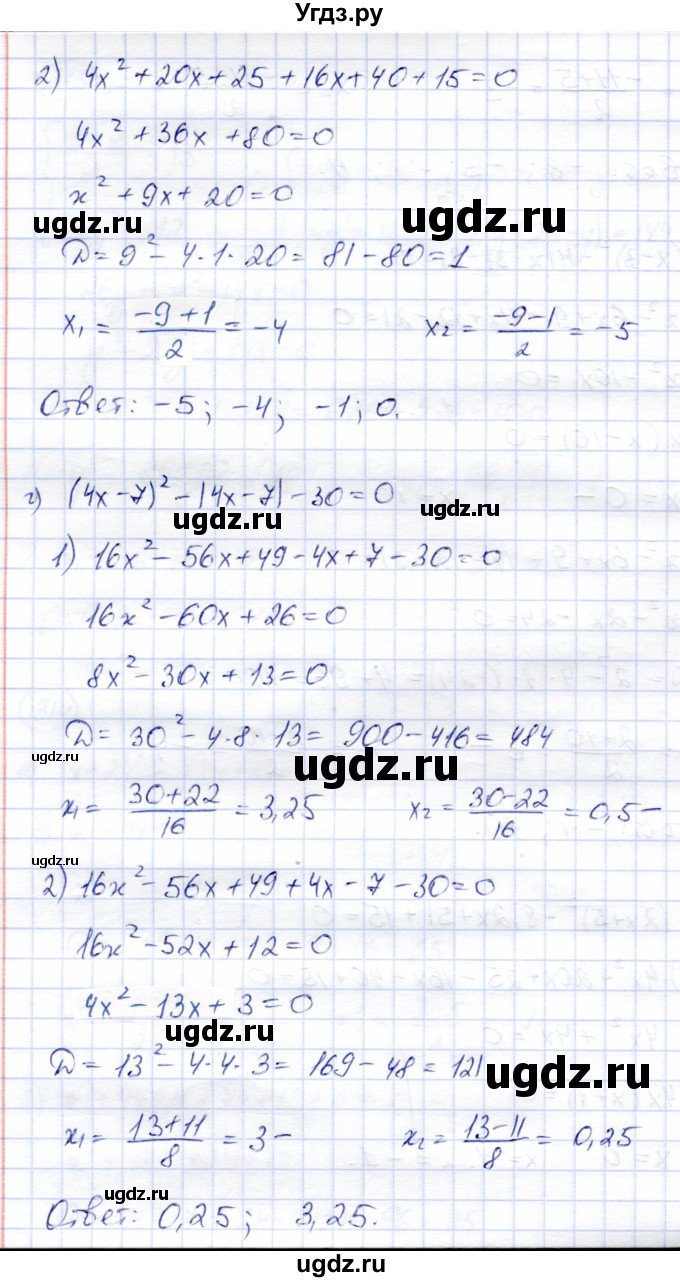 Угдз.ру
2) 4x² + 20x + 25 + 16x + 40 + 15 = 0
4x² + 36x + 80 = 0
x² + 9x + 20 = 0
ugdz.ru
ugdz.ru
D = 9² - 4·1·20 = 81 - 80 = 1
x₁ = (-9+1)/2 = -4 x₂ = (-9-1)/2 = -5
Ответ: -5; -4; -1; 0.
г) (4x - 7)² - |4x - 7| - 30 = 0
ugdz.ru
ugdz.ru
1) 16x² - 56x + 49 - 4x + 7 - 30 = 0
16x² - 60x + 26 = 0
8x² - 30x + 13 = 0
D = 30² - 4·8·13 = 900 - 416 = 484
ugdz.ru
ugdz.ru
x₁ = (30+22)/16 = 3,25 x₂ = (30-22)/16 = 0,5 -
ugdz.ru
2) 16x² - 56x + 49 + 4x - 7 - 30 = 0
16x² - 52x + 12 = 0
4x² - 13x + 3 = 0
ugdz.ru
D = 13² - 4·4·3 = 169 - 48 = 121
ugdz.ru
x₁ = (13+11)/8 = 3 - x₂ = (13-11)/8 = 0,25
ugdz.ru
Ответ: 0,25; 3,25.
ugdz.ru